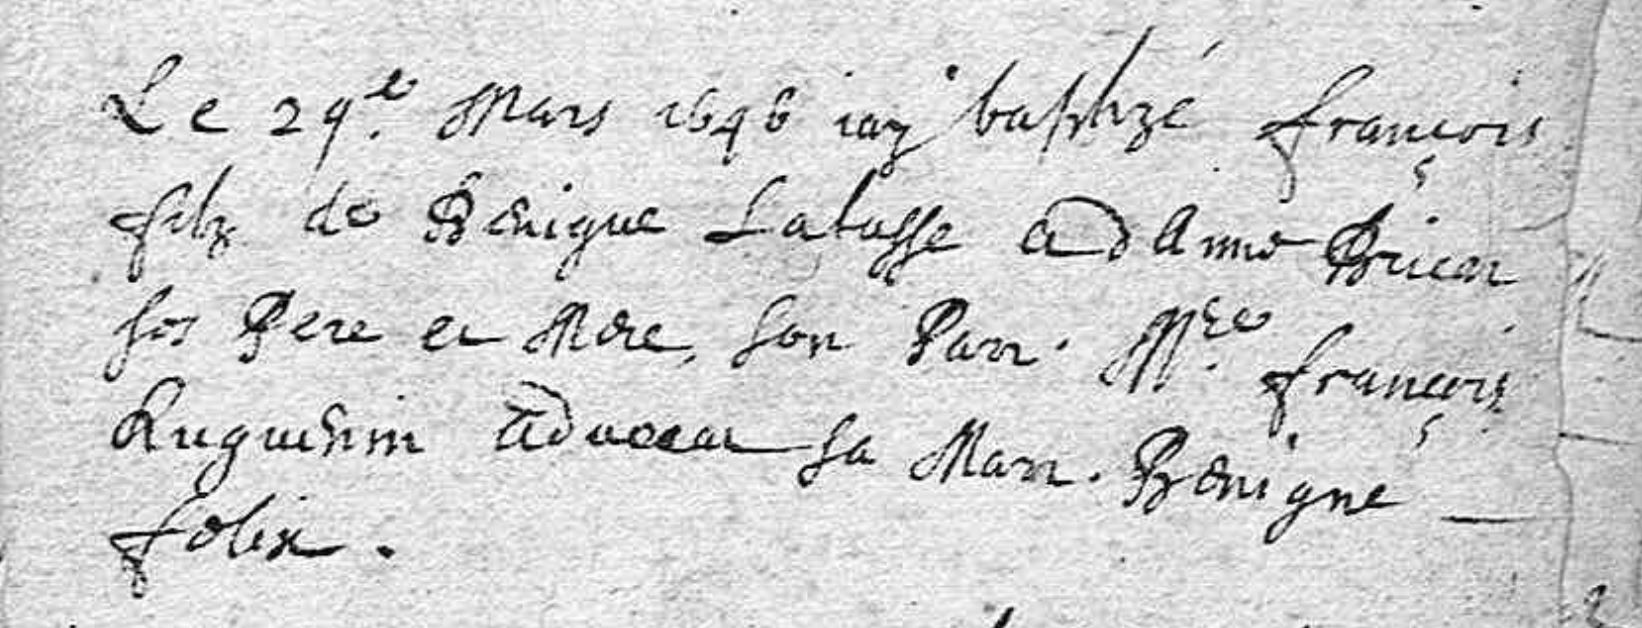 Le 29.e Mars 1646 iay baptizé françois
filz de Benigne Labasse a d'Anne
ses Pere et Mere, son Parr. Mre françois
Huguenin advocat sa Marr. Benigne
felix.